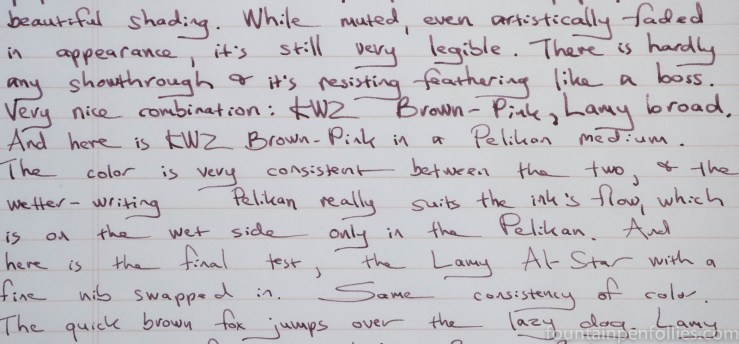 beautiful shading. While muted, even artistically faded
in appearance, it's still very legible. There is hardly
any showthrough & it's resisting feathering like a boss.
Very nice combination: KWZ Brown-Pink, Lamy broad.
And here is KWZ Brown-Pink in a Pelikan medium.
The color is very consistent between the two, & the
wetter-writing Pelikan really suits the ink's flow, which
is on the wet side only in the Pelikan. And
here is the final test, the Lamy Al-Star with a
fine nib swapped in. Same consistency of color.
The quick brown fox jumps over the lazy dog. Lamy
fountainpenfollies.com